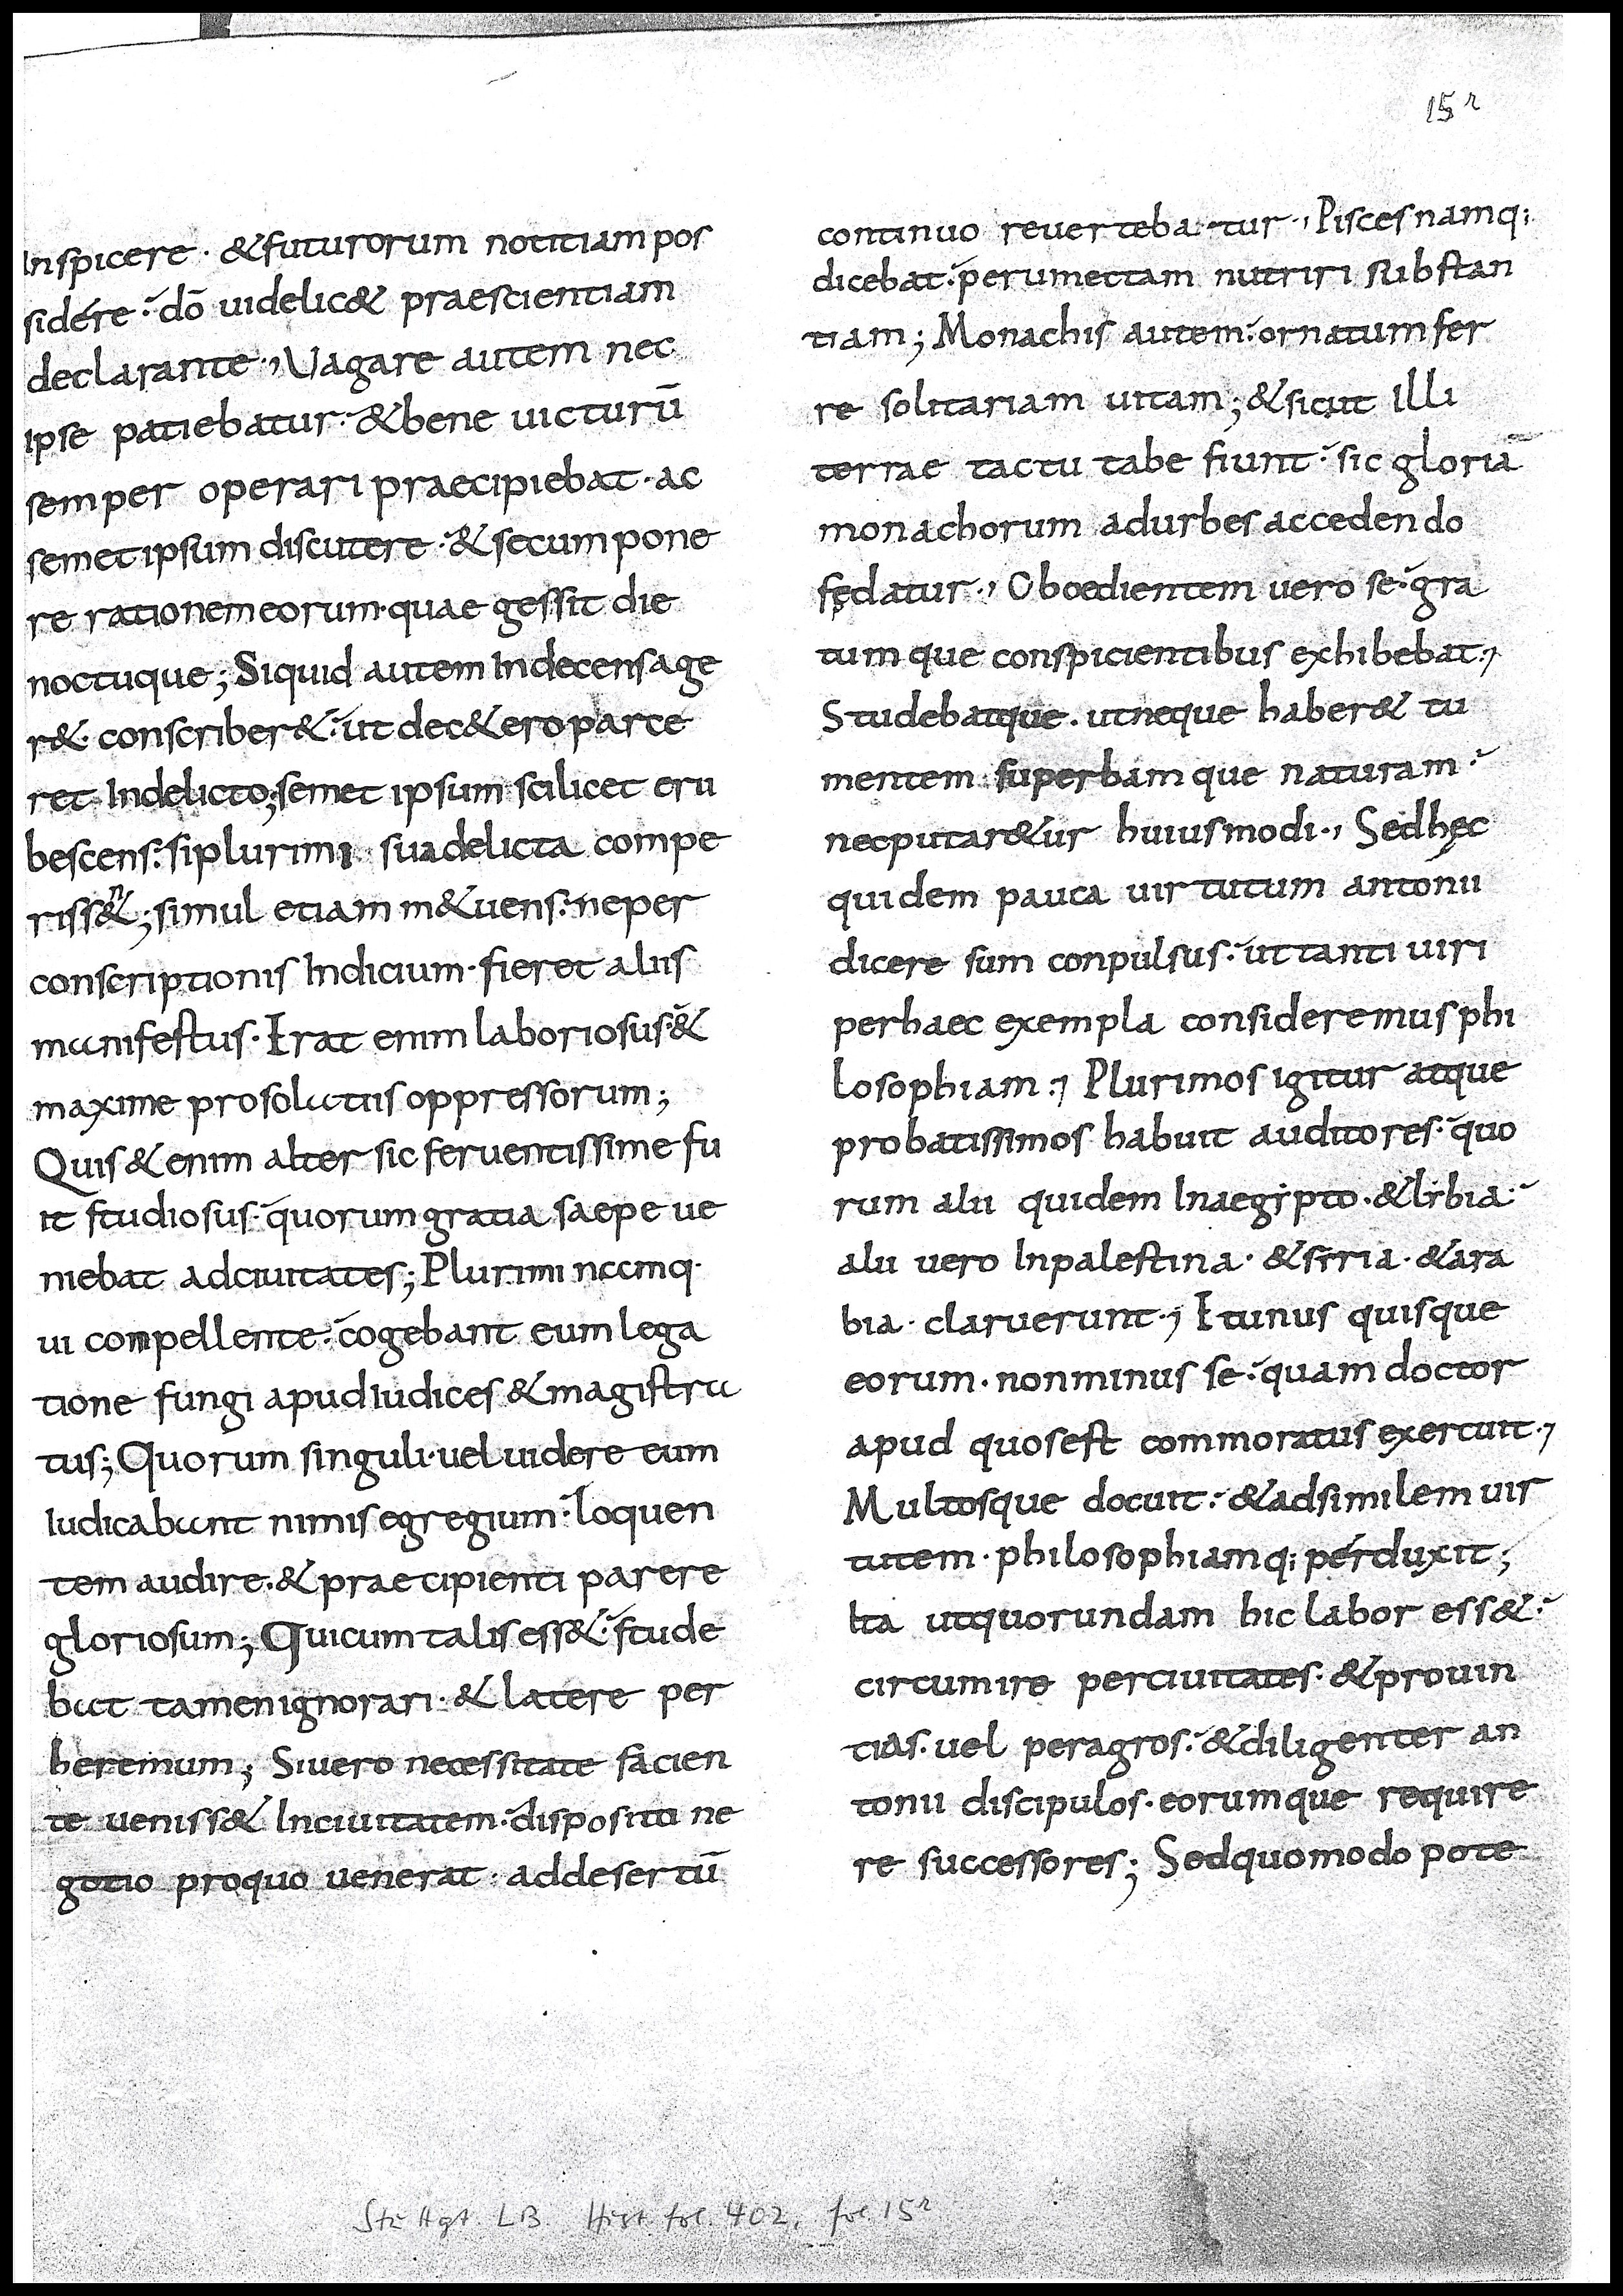 15r
Inspicere · & futurorum notitiam pos
sidere · dō uidelic& praescientiam
declarante ·, Uagare autem nec
ipse patiebatur · & bene uicturū
semper operari praecipiebat · ac
semet ipsum discutere · & secum pone
re rationem eorum · quae gessit die
noctuque ; Siquid autem Indecens age
r& · conscriber& · ut dec&ero parce
ret Indelicto ; semet ipsum scilicet eru
bescens : si plurimi sua delicta compe
riss&n ; simul etiam m&uens : ne per
conscriptionis Indicium · fieret aliis
manifestus · Erat enim laboriosus · &
maxime pro solutiis oppressorum ;
Quis & enim alter sic feruentissime fu
it studiosus · quorum gratia saepe ue
niebat ad ciuitates ; Plurimi namq ·
ui conpellente · cogebant eum lega
tione fungi apud iudices & magistra
tus ; Quorum singuli · uel uidere eum
Iudicabant nimis egregium · loquen
tem audire · & praecipienti parere
gloriosum ; Qui cum talis ess& · stude
bat tamen ignorari · & latere per
heremum ; Si uero necessitate facien
te ueniss& In ciuitatem · disposito ne
gotio pro quo uenerat · ad desertū
continuo reuertebatur ·, Pisces namq;
dicebat · per umectam nutriri substan
tiam ; Monachis autem · ornatum fer
re solitariam uitam ; & sicut Illi
terrae tactu tabe fiunt · sic gloriā
monachorum ad urbes accedendo
fędatur ·, Oboedientem uero se · gra
tumque conspicientibus exhibebat ·,
Studebatque · ut neque haber& tu
mentem superbamque naturam ·
nec putar&ur huiusmodi ·, Sed hęc
quidem pauca uirtutum antonii
dicere sum conpulsus · ut tanti uiri
per haec exempla consideremus phi
losophiam ·, Plurimos igitur atque
probatissimos habuit auditores · quo
rum alii quidem In aegipto · & libia ·
alii uero In palestina · & siria · & ara
bia · claruerunt ·, Et unus quisque
eorum · non minus se · quam doctor
apud quos est commoratus exercuit ·,
Multosque docuit · & ad similem uir
tutem · philosophiamq; perduxit ;
Ita ut quorundam hic labor ess& ·
circumire per ciuitates · & prouin
tias · uel per agros · & diligenter an
tonii discipulos · eorumque require
re successores ; Sed quomodo pote
Sttgt. LB. Hist. fol. 402, fol. 15r